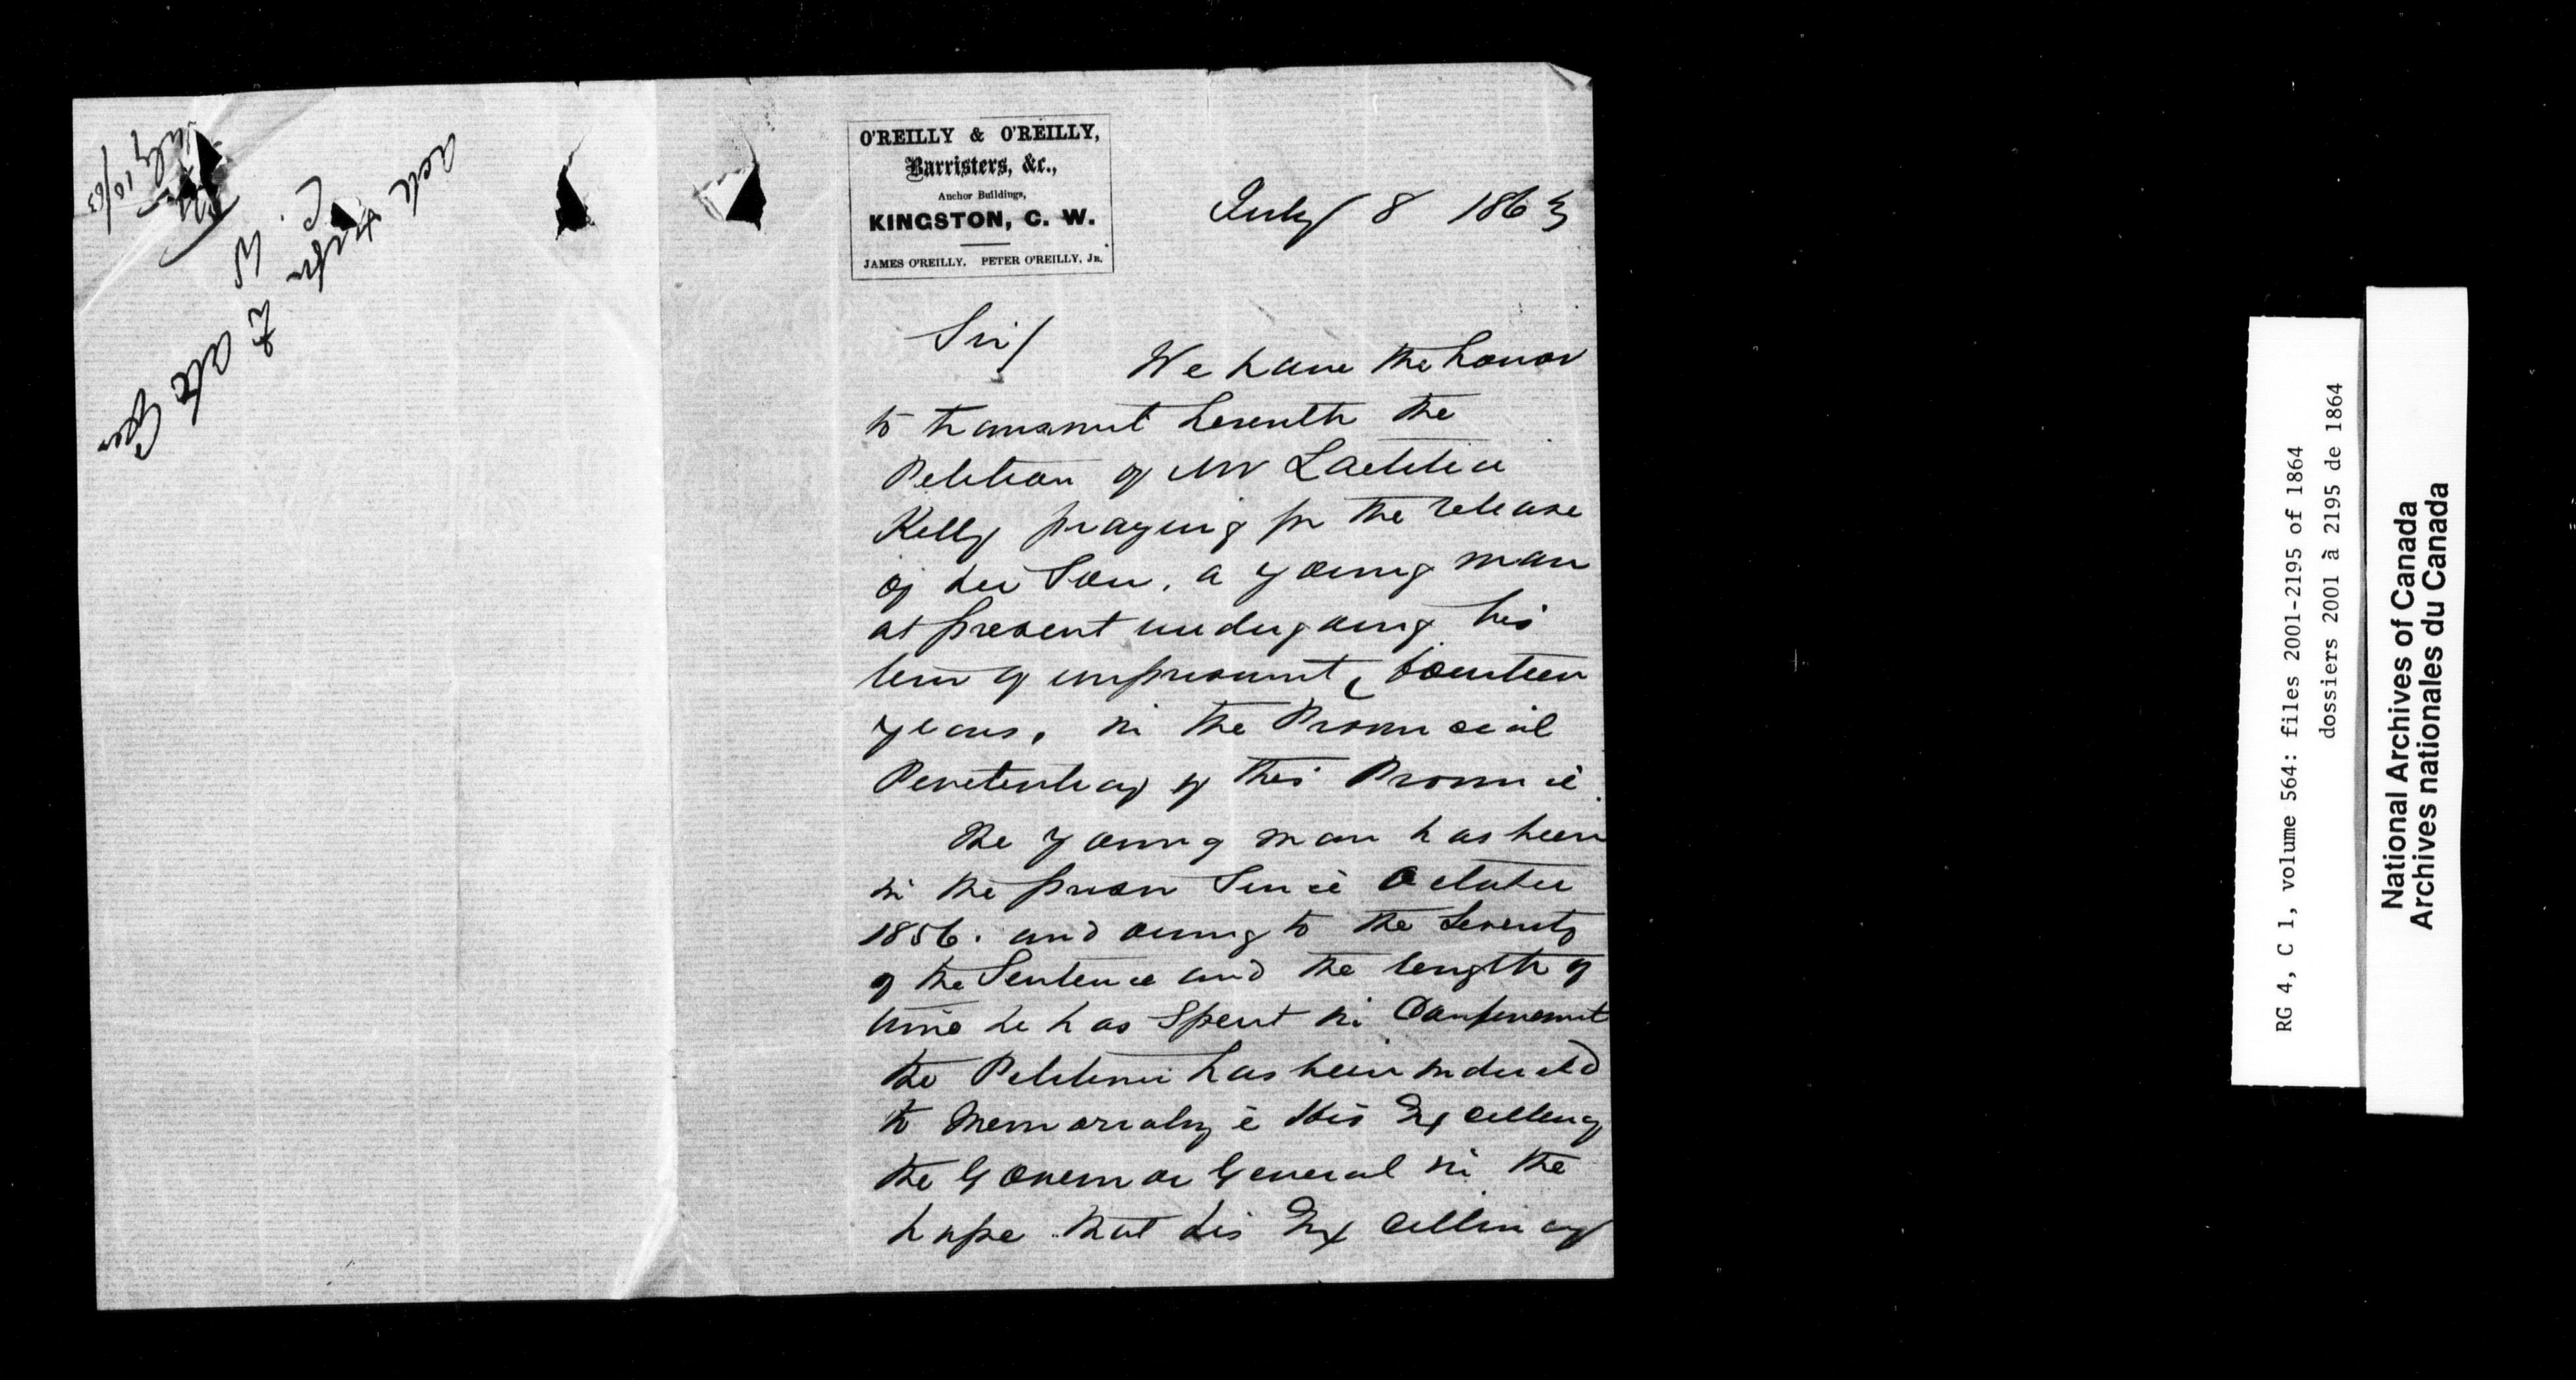 O'REILLY & O'REILLY,
Barristers, &c.,
Anchor Buildings,
KINGSTON, C. W.
JAMES O'REILLY. PETER O'REILLY, JR.
July 8 1863
Sir/
We have the honor
to transmit herewith the
Petition of Mrs Laetitia
Kelly praying for the release
of her Son, a young man
at present undergoing his
term of imprisonmt, fourteen
years, in the Provincial
Penetentiary of this Province.
The young man has been
in the prison Since October
1856. and owing to the Severity
of the Sentence and the length of
time he has Spent in Confinemnt
the Petitioner has been induced
to Memorialize His Excellency
the Governor General in the
hope that his Excellency
July 10/63
Ack
C. W
& Att Gen
RG 4, C 1, volume 564: files 2001-2195 of 1864
dossiers 2001 à 2195 de 1864
National Archives of Canada
Archives nationales du Canada